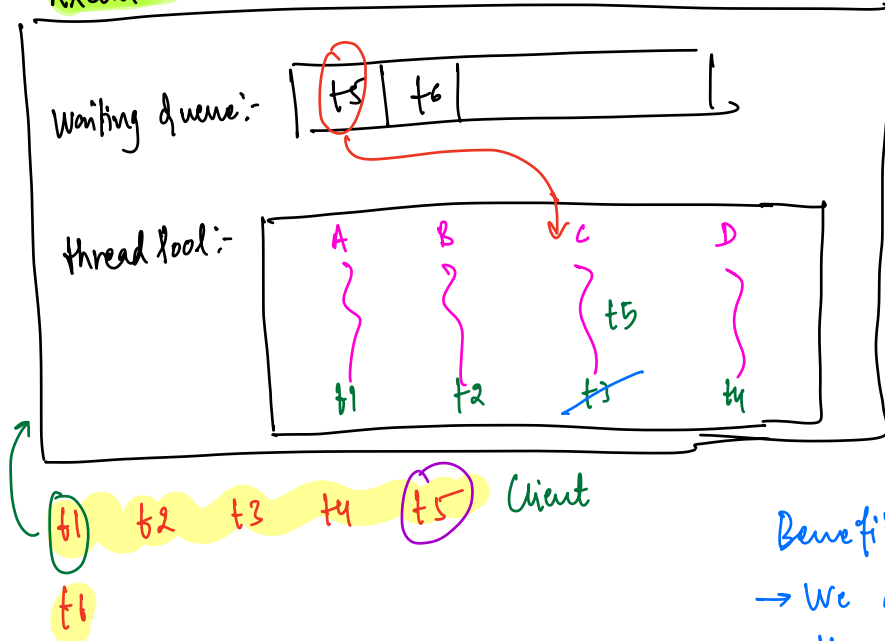 Waiting Queue:-
t5 t6
thread Pool:-
A B C D
t5
t1 t2 t3 t4
t1 t2 t3 t4 t5 Client
t6
→ We